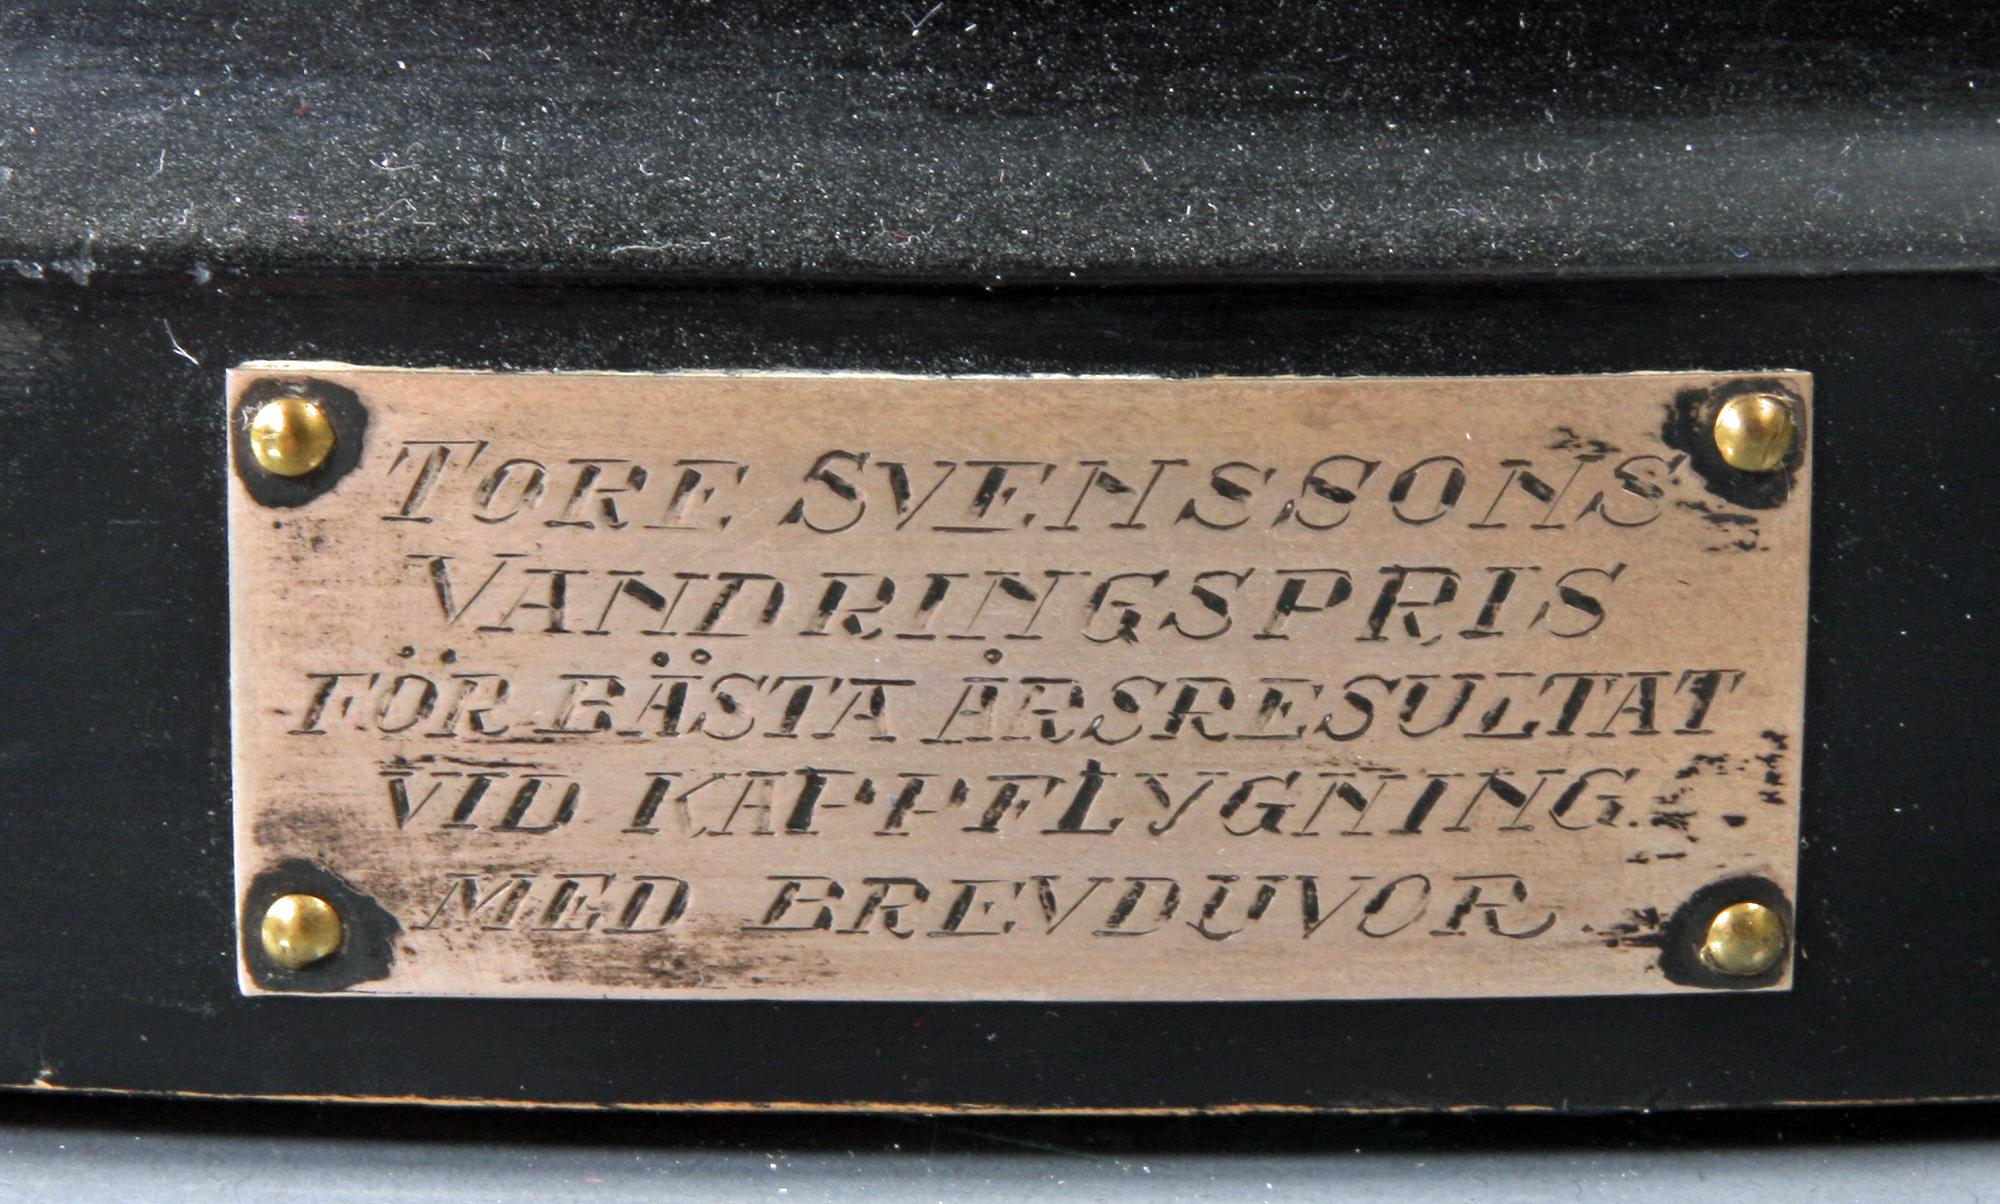 TORE SVENSSONS
VANDRINGSPRIS
FÖR BÄSTA ÅRSRESULTAT
VID KAPPFLYGNING
MED BREVDUVOR